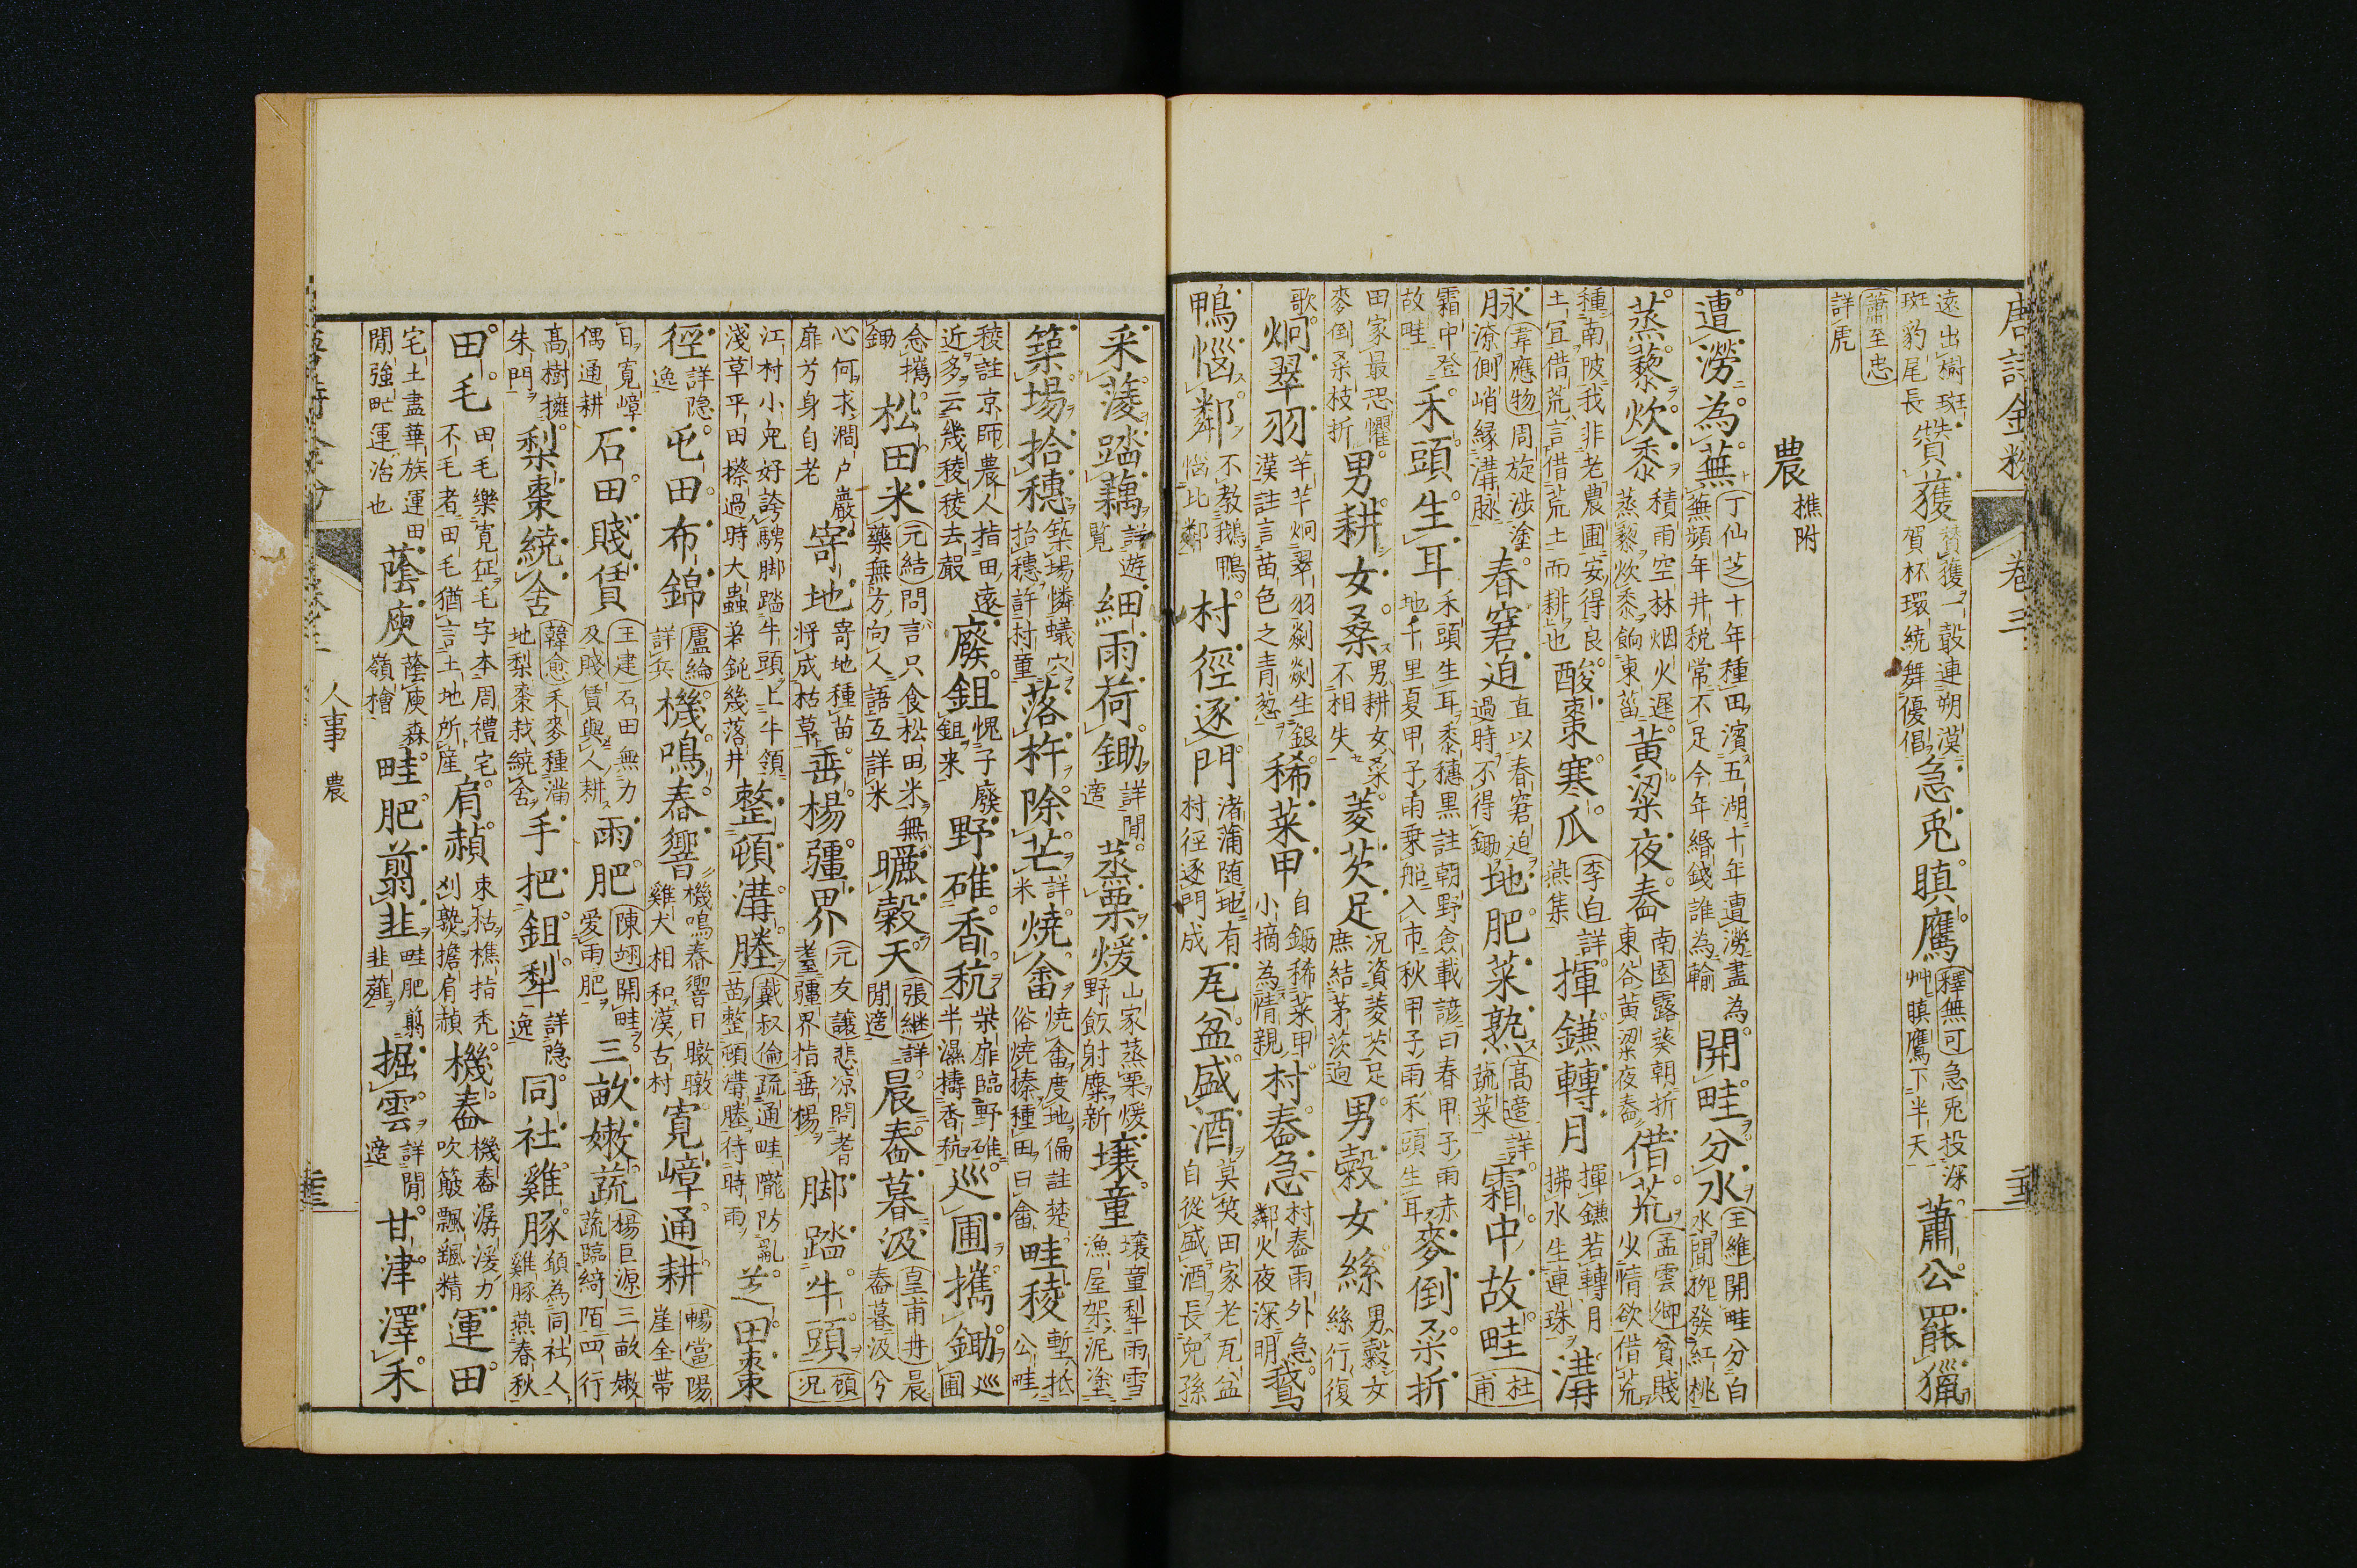 唐詩金粉 卷三
遠出樹斑
斑豹尾長
贊獲
贊獲一轂連朔漠
賀杯環繞舞優倡
急兎瞋鷹
釋無可急兎投深
艸瞋鷹下半天
蕭公罷獵
蕭至忠
詳虎
農
樵附
遭澇為蕪
丁仙芝十年種田濱五湖十年遭澇盡為
蕪頻年井税常不足今年緡錢誰為輸
開畦分水
王維開畦分白
水間柳發紅桃
蒸藜炊黍
積雨空林烟火遲
蒸藜炊黍餉東菑
黄粱夜舂
南園露葵朝折
東谷黄粱夜舂
借荒
孟雲卿貧賤
少情欲借荒
種南陂我非老農圃安得良
土宜借荒言借荒土而耕也
酸棗寒瓜
李白詳
燕集
揮鎌轉月
揮鎌若轉月
拂水生連珠
溝
脉
韋應物周旋涉塗
潦側峭緣溝脉
春窘迫
直以春窘迫
過時不得鋤
地肥菜熟
高適詳
蔬菜
霜中故畦
杜
甫
霜中登
故畦
禾頭生耳
禾頭生耳黍穗黒註朝野僉載諺曰春甲子雨赤
地千里夏甲子雨乗船入市秋甲子雨禾頭生耳
麥倒桑折
田家最恐懼
麥倒桑枝折
男耕女桑
男耕女桑
不相失
菱芡足
况資菱芡足
庶結茅茨迥
男穀女絲
男穀女
絲行復
歌
炯翠羽
芊芊炯翠羽剡剡生銀
漢註言苗色之青葱
稀菜甲
自鋤稀菜甲
小摘為情親
村舂急
村舂雨外急
鄰火夜深明
鵞
鴨惱鄰
不教鵝鴨
惱比鄰
村徑逐門
渚蒲随地有
村徑逐門成
瓦盆盛酒
莫笑田家老瓦盆
自從盛酒長兒孫
采菱踏藕
詳遊
覧
細雨荷鋤
詳閒
適
蒸栗煖
山家蒸栗煖
野飯射麋新
壤童
壤童犁雨雪
漁屋架泥塗
築場拾穗
築場憐蟻穴
拾穗許村童
落杵除芒
詳
米
燒畬
燒畬度地偏註楚
俗燒榛種田曰畬
畦稜
塹抵
公畦
稜註京師農人指田遠
近多云幾稜稜去嚴
廢鉏
愧子廢
鉏来
野碓香秔
柴扉臨野碓
半濕擣香秔
巡圃攜鋤
巡
圃
念攜
鋤
松田米
元結問言只食松田米無
藥無方向人語互詳米
曬穀天
張継詳
閒適
晨舂暮汲
皇甫冉晨
舂暮汲兮
心何求澗户巖
扉兮身自老
寄地
寄地種苗
将成枯草
垂楊疆界
元友讓悲凉問耆
耋疆界指垂楊
脚踏牛頭
顧
况
江村小兒好誇騁脚踏牛頭上牛領
淺草平田擦過時大蟲着鈍幾落井
整頓溝塍
戴叔倫疏通畦隴防亂
苗整頓溝塍待時雨
芝田棗
徑
詳隐
逸
屯田布錦
盧綸
詳兵
機鳴春響
機鳴舂響日暾暾
雞犬相和漢古村
寛嶂通耕
暢當陽
崖全帶
日寛嶂
偶通耕
石田賤賃
王建石田無力
及賤賃與人耕
雨肥
陳翊開畦
愛雨肥
三畝嫩蔬
楊巨源三畝嫩
蔬臨綺陌四行
髙樹擁
朱門
梨棗繞舍
韓愈禾麥種滿
地梨棗栽繞舍
手把鉏犁
詳隐
逸
同社雞豚
願為同社人
雞豚燕春秋
田毛
田毛樂寛征毛字本周禮宅
不毛者田毛猶言土地所産
肩赬
束枯樵指秃
刈熟擔肩赬
機舂
機舂潺湲力
吹簸飄颻精
運田
宅土盡華族運田
閒強甿運冶也
蔭庾
蔭庾森
嶺檜
畦肥翦韭
畦肥翦
韭薤
掘雲
詳閒
適
甘津澤禾
人事 農